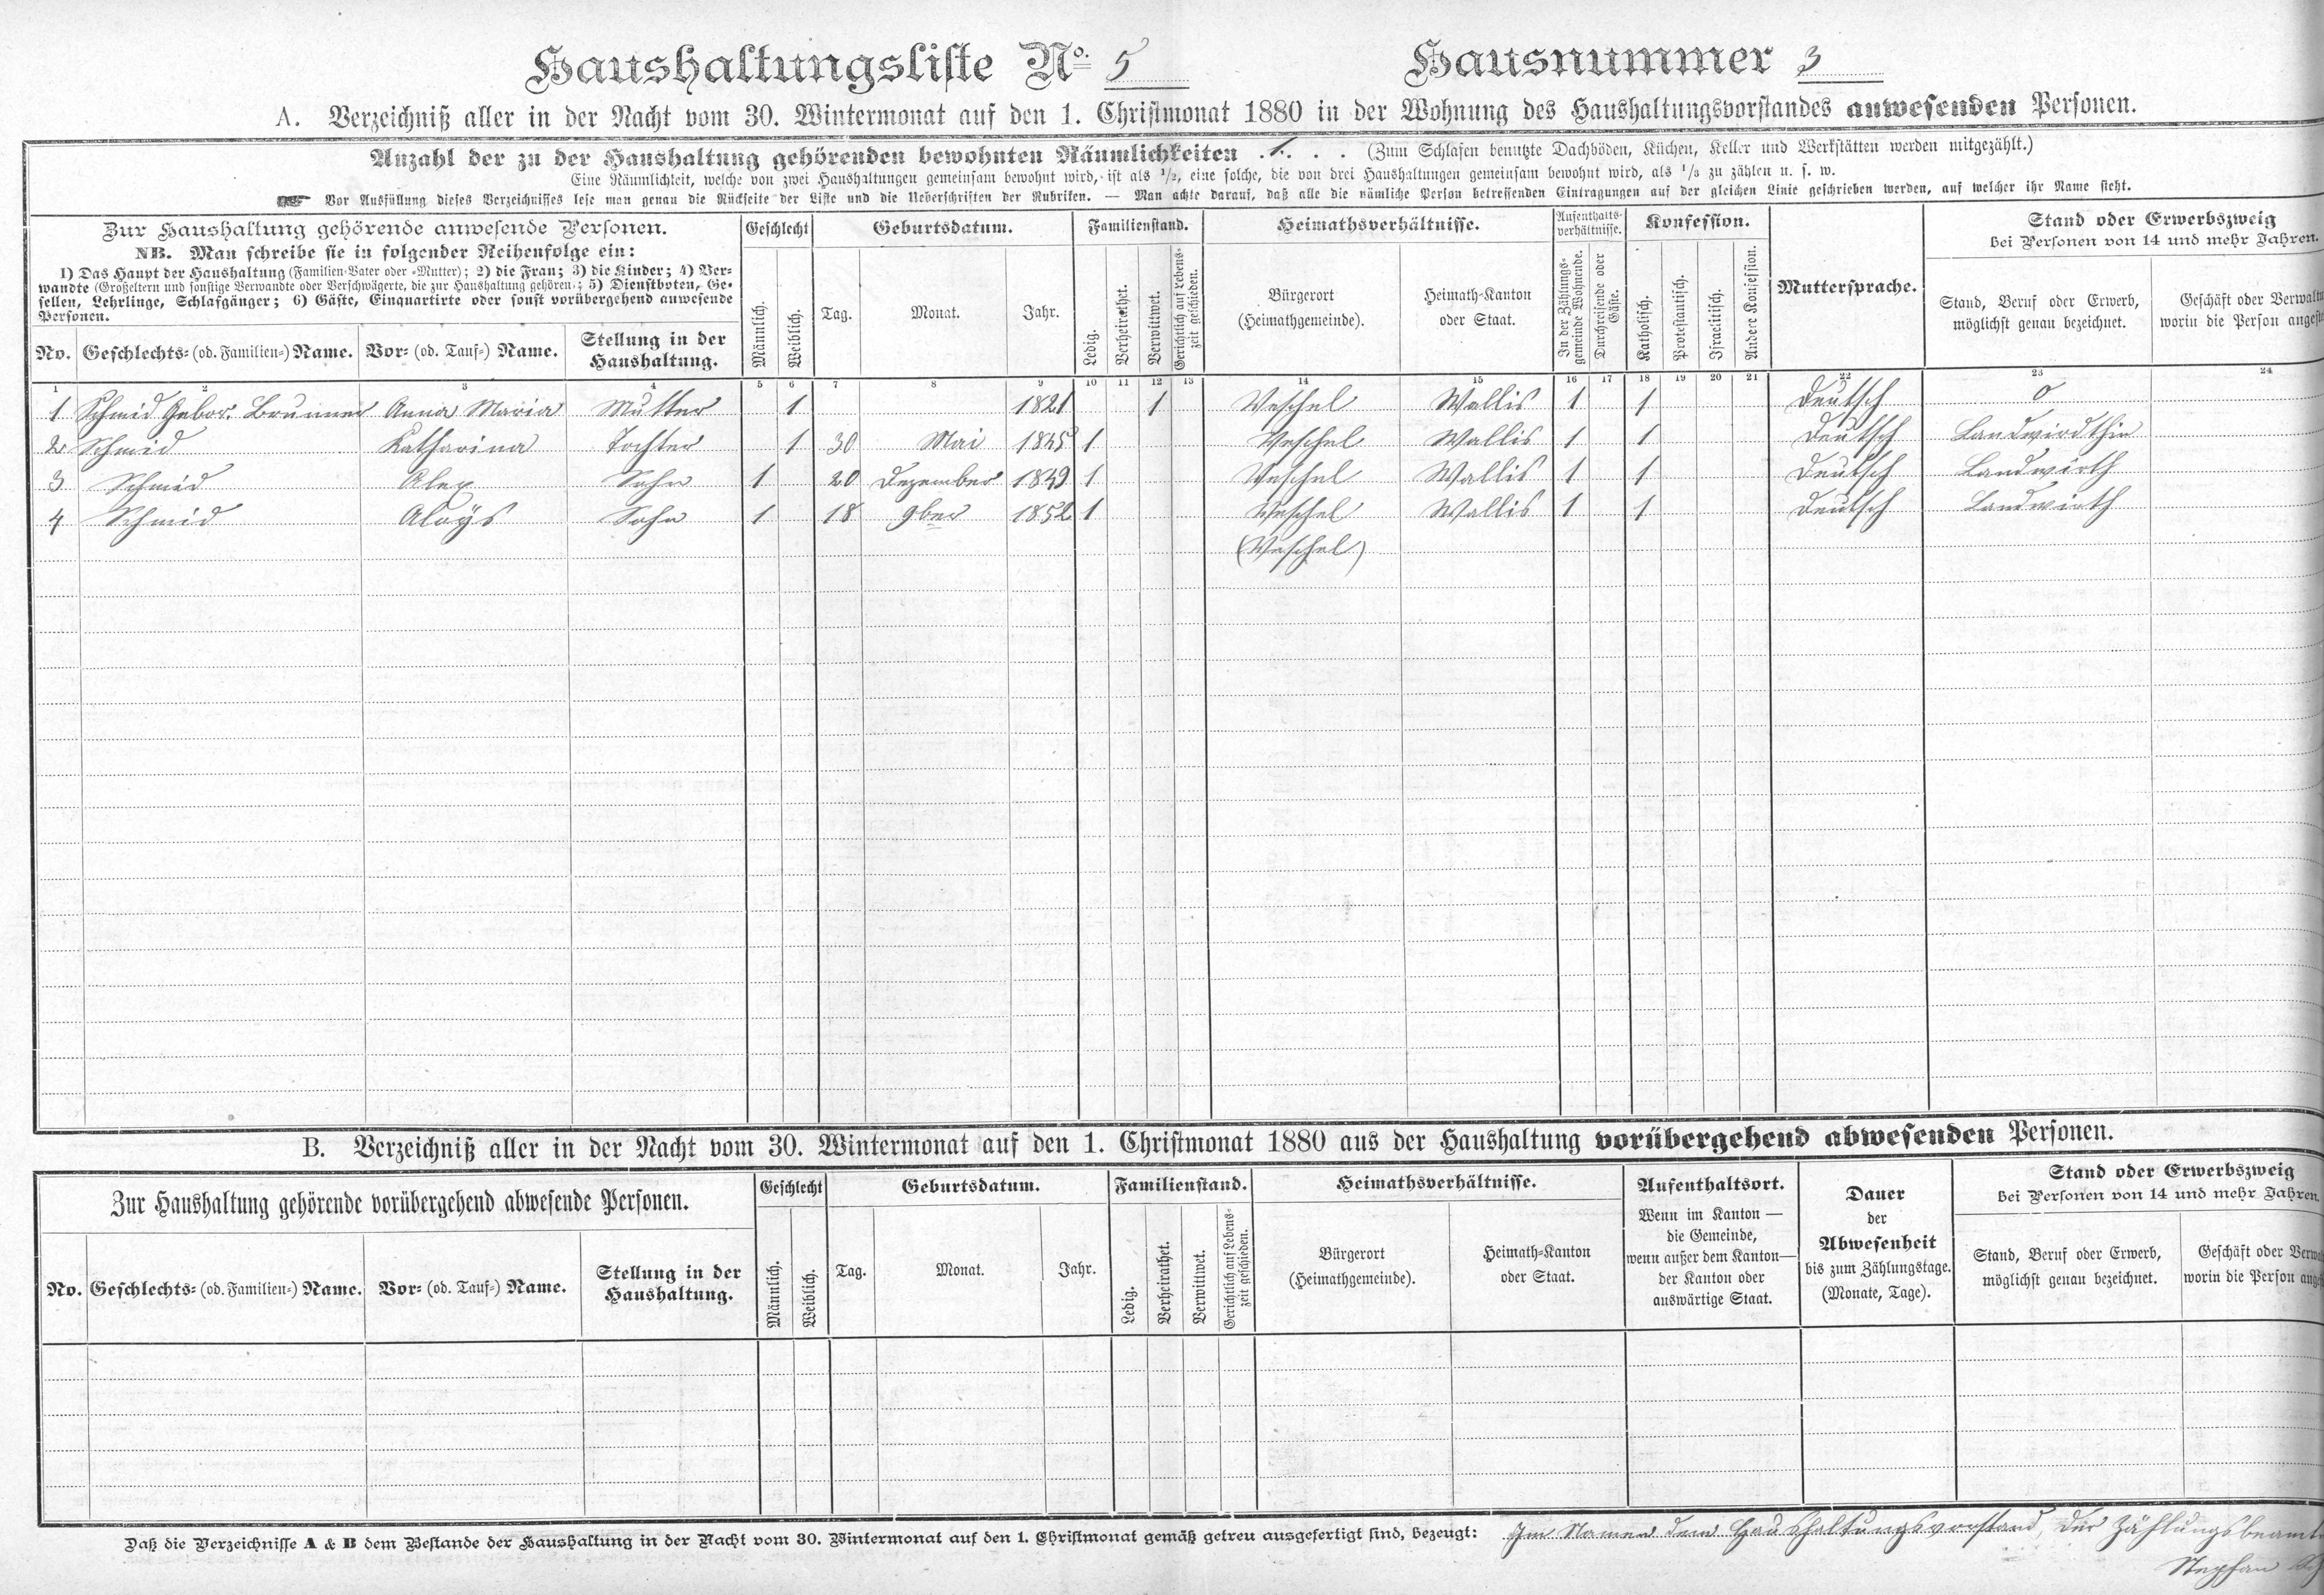 Haushaltungsliste No. 5 Hausnummer 3
A. Verzeichniß aller in der Nacht vom 30. Wintermonat auf den 1. Christmonat 1880 in der Wohnung des Haushaltungsvorstandes anwesenden Personen.
Anzahl der zu der Haushaltung gehörenden bewohnten Räumlichkeiten . 1. . . (Zum Schlafen benutzte Dachböden, Küchen, Keller und Werkstätten werden mitgezählt.)
Eine Räumlichkeit, welche von zwei Haushaltungen gemeinsam bewohnt wird, ist als 1/2, eine solche, die von drei Haushaltungen gemeinsam bewohnt wird, als 1/3 zu zählen u. s. w.
Vor Ausfüllung dieses Verzeichnisses lese man genau die Rückseite der Liste und die Ueberschriften der Rubriken. — Man achte darauf, daß alle die nämliche Person betreffenden Eintragungen auf der gleichen Linie geschrieben werden, auf welcher ihr Name steht.
Zur Haushaltung gehörende anwesende Personen.
NB. Man schreibe sie in folgender Reihenfolge ein:
1) Das Haupt der Haushaltung (Familien-Vater oder -Mutter); 2) die Frau; 3) die Kinder; 4) Ver-
wandte (Großeltern und sonstige Verwandte oder Verschwägerte, die zur Haushaltung gehören); 5) Dienstboten, Ge-
sellen, Lehrlinge, Schlafgänger; 6) Gäste, Einquartirte oder sonst vorübergehend anwesende
Personen.
No. Geschlechts- (od. Familien-) Name. Vor- (od. Tauf-) Name. Stellung in der
Haushaltung.
Geschlecht
Männlich. Weiblich.
Geburtsdatum.
Tag. Monat. Jahr.
Familienstand.
Ledig. Verheirathet. Verwittwet. Gerichtlich auf Lebens-
zeit geschieden.
Heimathsverhältnisse.
Bürgerort
(Heimathgemeinde).
Heimath-Kanton
oder Staat.
Aufenthalts-
verhältnisse.
In der Zählungs-
gemeinde Wohnende.
Durchreisende oder
Gäste.
Konfession.
Katholisch. Protestantisch. Israelitisch. Andere Konfession.
Muttersprache.
Stand oder Erwerbszweig
bei Personen von 14 und mehr Jahren.
Stand, Beruf oder Erwerb,
möglichst genau bezeichnet.
Geschäft oder
worin die Person
1 2 3 4 5 6 7 8 9 10 11 12 13 14 15 16 17 18 19 20 21 22 23 24
1 Schmid Gebor. Brunner Anna Maria Mutter 1 1821 1 Veschel Wallis 1 1 Deutsch 0
2 Schmid Katharina Tochter 1 30 Mai 1845 1 Veschel Wallis 1 1 Deutsch Landwirdthin
3 Schmid Alex Sohn 1 20 Dezember 1849 1 Veschel Wallis 1 1 Deutsch Landwirth
4 Schmid Aloÿs Sohn 1 18 9ber 1852 1 Veschel Wallis 1 1 Deutsch Landwirth
(Veschel)
B. Verzeichniß aller in der Nacht vom 30. Wintermonat auf den 1. Christmonat 1880 aus der Haushaltung vorübergehend abwesenden Personen.
Zur Haushaltung gehörende vorübergehend abwesende Personen.
No. Geschlechts- (od. Familien-) Name. Vor- (od. Tauf-) Name. Stellung in der
Haushaltung.
Geschlecht
Männlich. Weiblich.
Geburtsdatum.
Tag. Monat. Jahr.
Familienstand.
Ledig. Verheirathet. Verwittwet. Gerichtlich auf Lebens-
zeit geschieden.
Heimathsverhältnisse.
Bürgerort
(Heimathgemeinde).
Heimath-Kanton
oder Staat.
Aufenthaltsort.
Wenn im Kanton —
die Gemeinde,
wenn außer dem Kanton—
der Kanton oder
auswärtige Staat.
Dauer
der
Abwesenheit
bis zum Zählungstage.
(Monate, Tage).
Stand oder Erwerbszweig
bei Personen von 14 und mehr Jahren.
Stand, Beruf oder Erwerb,
möglichst genau bezeichnet.
Geschäft oder
worin die Person
Daß die Verzeichnisse A & B dem Bestande der Haushaltung in der Nacht vom 30. Wintermonat auf den 1. Christmonat gemäß getreu ausgefertigt sind, bezeugt: Im Namen dem Haushaltungsvorstand, der
Stephan